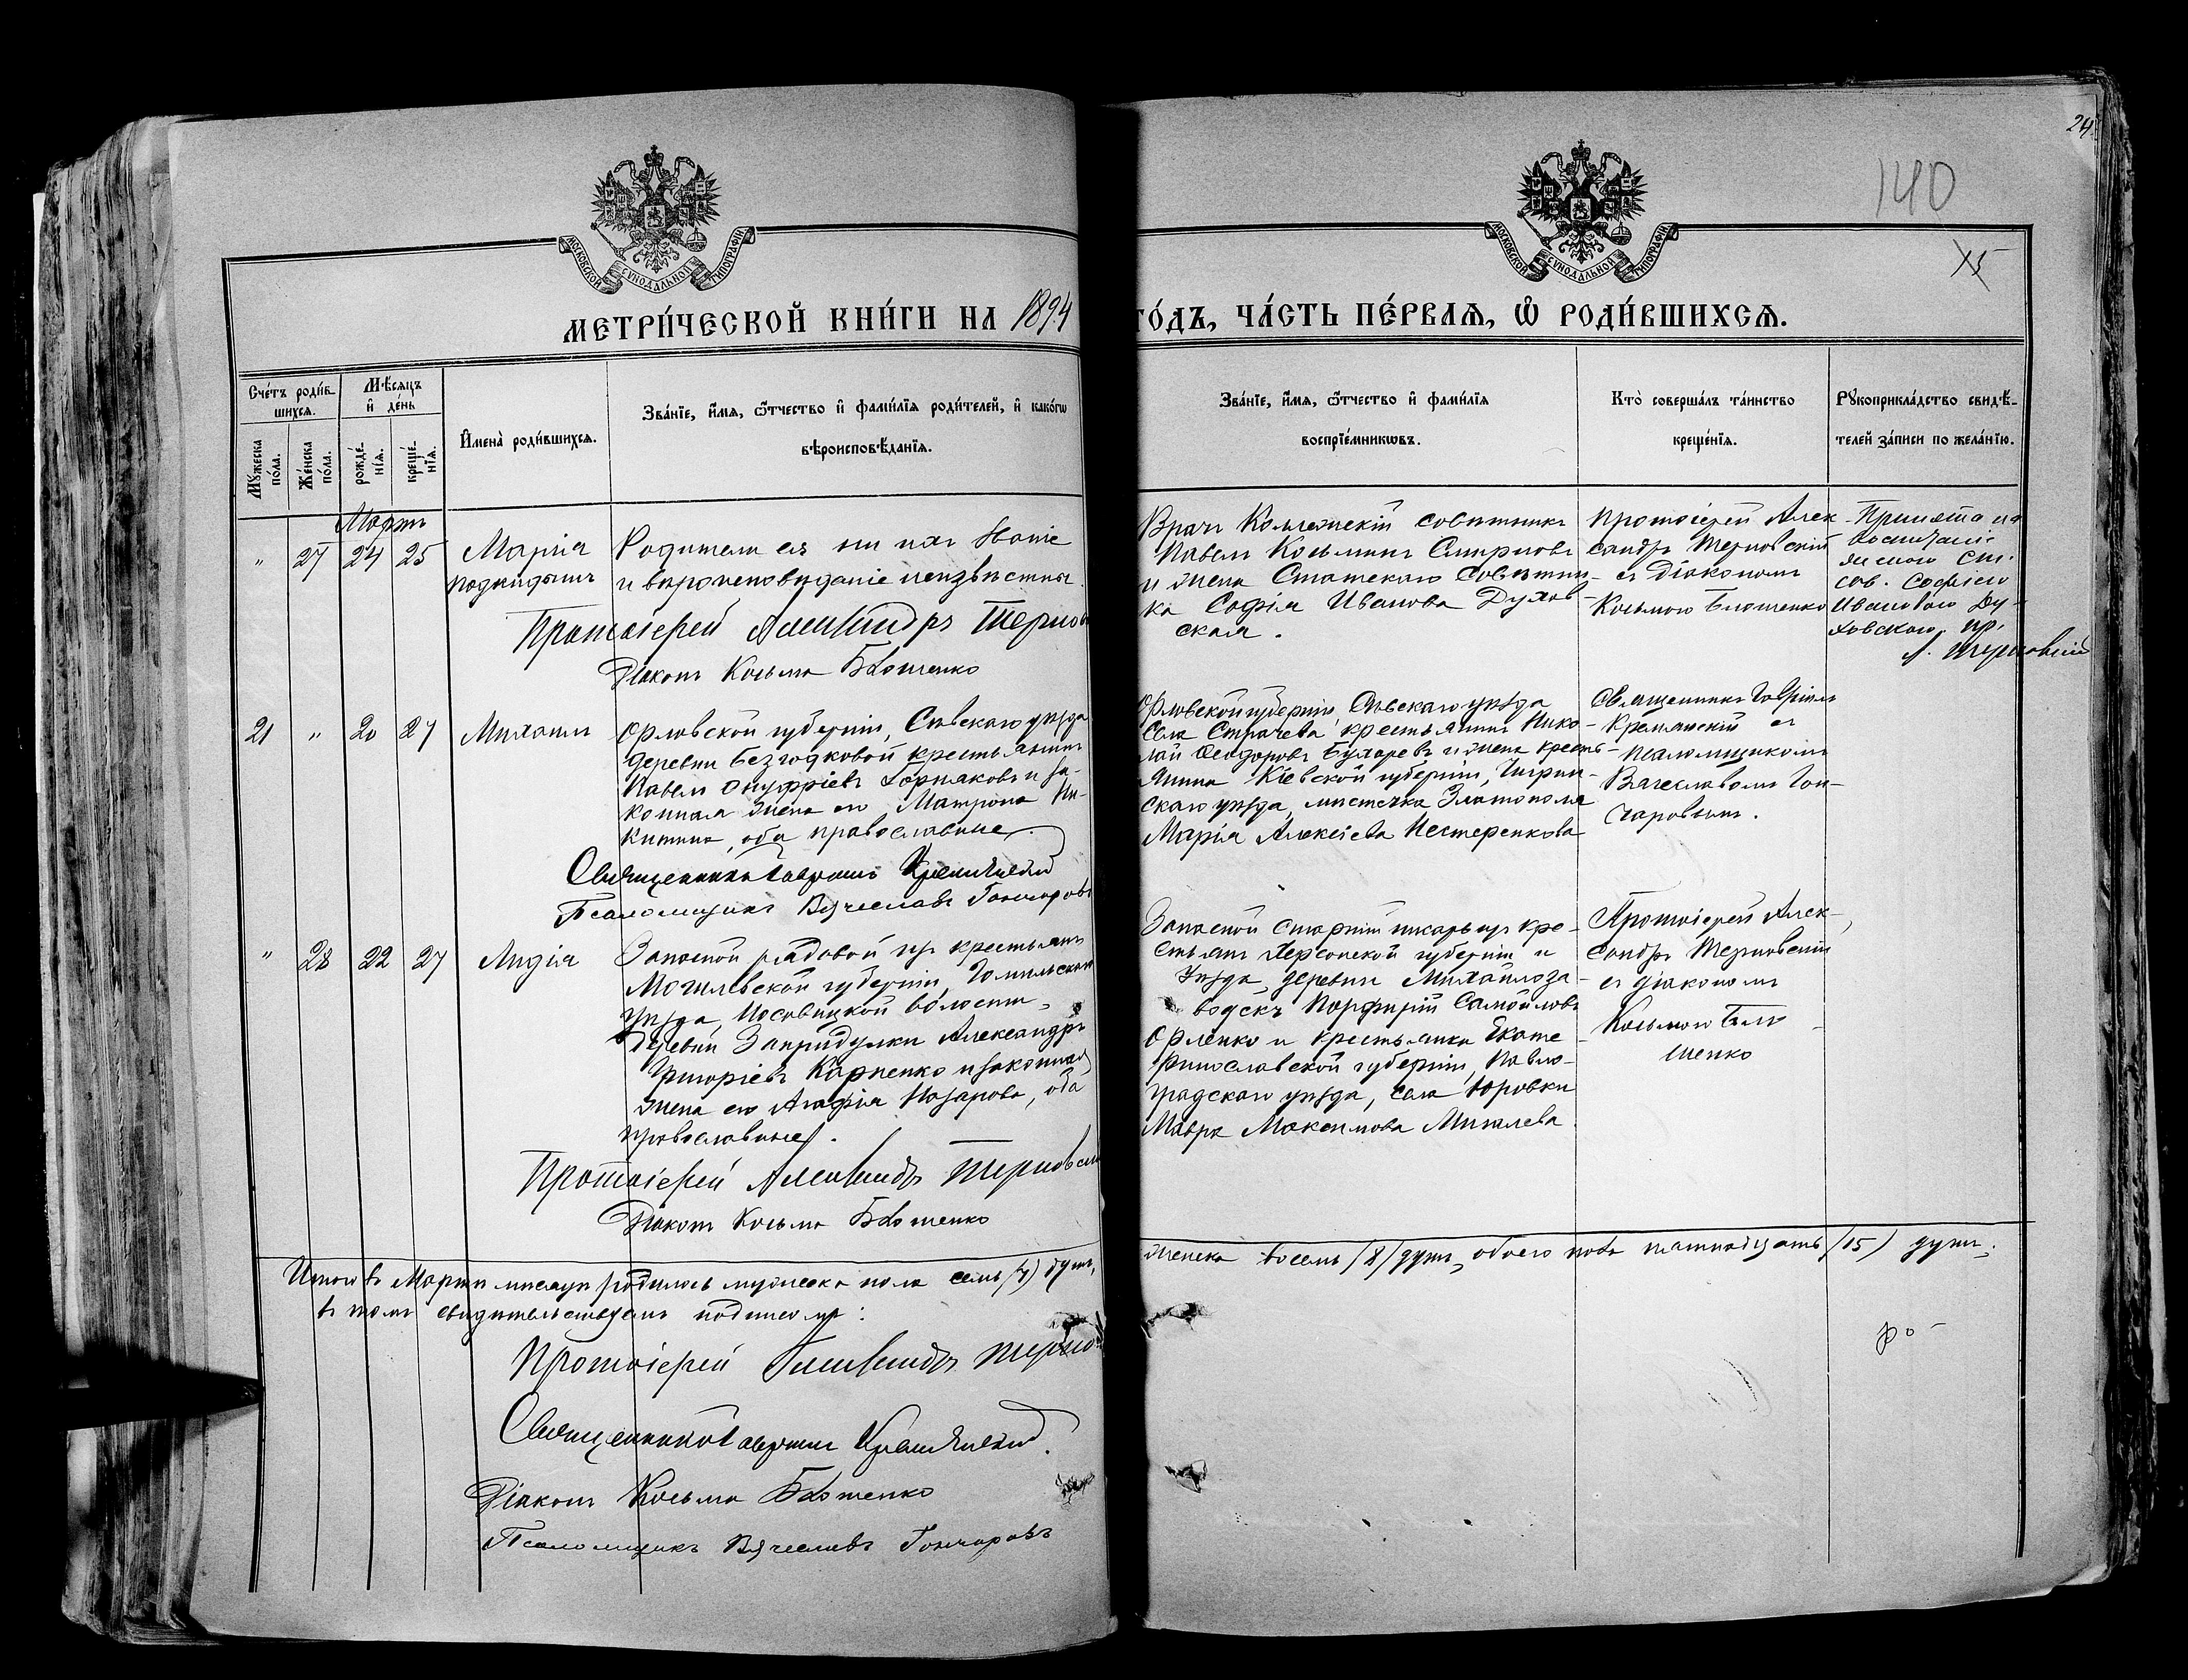 24
140
МОСКОВСКОЙ СѴНОДАЛЬНОЙ ТИПОГРАФІИ
МОСКОВСКОЙ СѴНОДАЛЬНОЙ ТИПОГРАФІИ
МЕТРИ́ЧЕСКОЙ КНИ́ГИ НА 1894
ГО́ДЪ, ЧА́СТЬ ПЕ́РВАѦ, Ѿ РОДИ́ВШИХСѦ.
Сче́тъ роди́в-
шихсѧ.
Мѣ́сѧцъ
и҆ де́нь
Мꙋ́жеска
по́ла.
Же́нска
по́ла.
рожде́-
нїѧ.
креще́-
нїѧ.
И҆мена̀ роди́вшихсѧ.
Зва́нїе, и҆́мѧ, ѻ҆́тчество и҆ фами́лїѧ роди́телей, и҆ како́гѡ
вѣроисповѣ́данїѧ.
Зва́нїе, и҆́мѧ, ѻ҆́тчество и҆ фами́лїѧ
воспрїе́мникѡвъ.
Кто̀ соверша́лъ та́инство
креще́нїѧ.
Рꙋкоприкла́дство свидѣ́-
телей за́писи по жела́нїю.
Мартъ
" 27 24 25 Марія
подкидышъ
Родители ея ни ихъ званіе
и вѣроисповѣданіе неизвѣстны.
Протоіерей Александръ Терновс
Діаконъ Козьма Блошенко
Врачъ Коллежскій совѣтникъ
Павелъ Козьминъ Смирновъ
и жена Статскаго Совѣтни-
ка Софія Иванова Духов-
ская.
Протоіерей Алек-
сандръ Терновскій
съ діакономъ
Козьмою Блошенко
Принята на
воспитаніе
женою Ст.
Сов. Софіею
Ивановою Ду-
ховскою. пр.
А. Терновскій
21 " 20 27 Михаилъ
Орловской губерніи, Сѣвскаго уѣзда
деревни Безгодковой крестьянинъ
Павелъ Онуфріевъ Горняковъ и за-
конная жена его Матрона Ни-
китина, оба православные.
Священникъ Гавріилъ Кремянскій
Псаломщикъ Вячеславъ Гончаровъ
Орловской губерніи, Сѣвскаго уѣзда
Села Страчева крестьянинъ Нико-
лай Ѳеодоровъ Бухаревъ и жена кресть-
янина Кіевской губерніи, Чигрин-
скаго уѣзда, мѣстечка Златополя
Марія Алексіева Нестеренкова
Священникъ Гавріилъ
Кремянскій съ
псаломщикомъ
Вячеславомъ Гон-
чаровымъ.
" 28 22 27 Лидія
Запасной рядовой изъ крестьянъ
Могилевской губерніи, Гомельскаго
уѣзда, Носовицкой волости,
деревни Запридулки Александръ
Григоріевъ Карпенко и законная
жена его Агафія Назарова, оба
православные.
Протоіерей Александръ Терновскій
Діаконъ Козьма Блошенко
Запасной старшій писарь изъ кре-
стьянъ Херсонской губерніи и
уѣзда, деревни Михайлоза-
водскъ Порфирій Самойловъ
Орленко и крестьянка Екате-
ринославской губерніи, Павло-
градскаго уѣзда, села Юровки
Мавра Максимова Михалева
Протоіерей Алек-
сандръ Терновскій
съ діакономъ
Козьмою Бло-
шенко
Итого въ Мартѣ мѣсяцѣ родилось мужеска пола семь (7) душъ,
женска восемь (8) душъ, обоего пола пятнадцать (15) душъ.
въ томъ свидѣтельствуемъ подписомъ:
Протоіерей Александръ Терно
Священникъ Гавріилъ Кремянскій.
Діаконъ Козьма Блошенко
Псаломщикъ Вячеславъ Гончаровъ